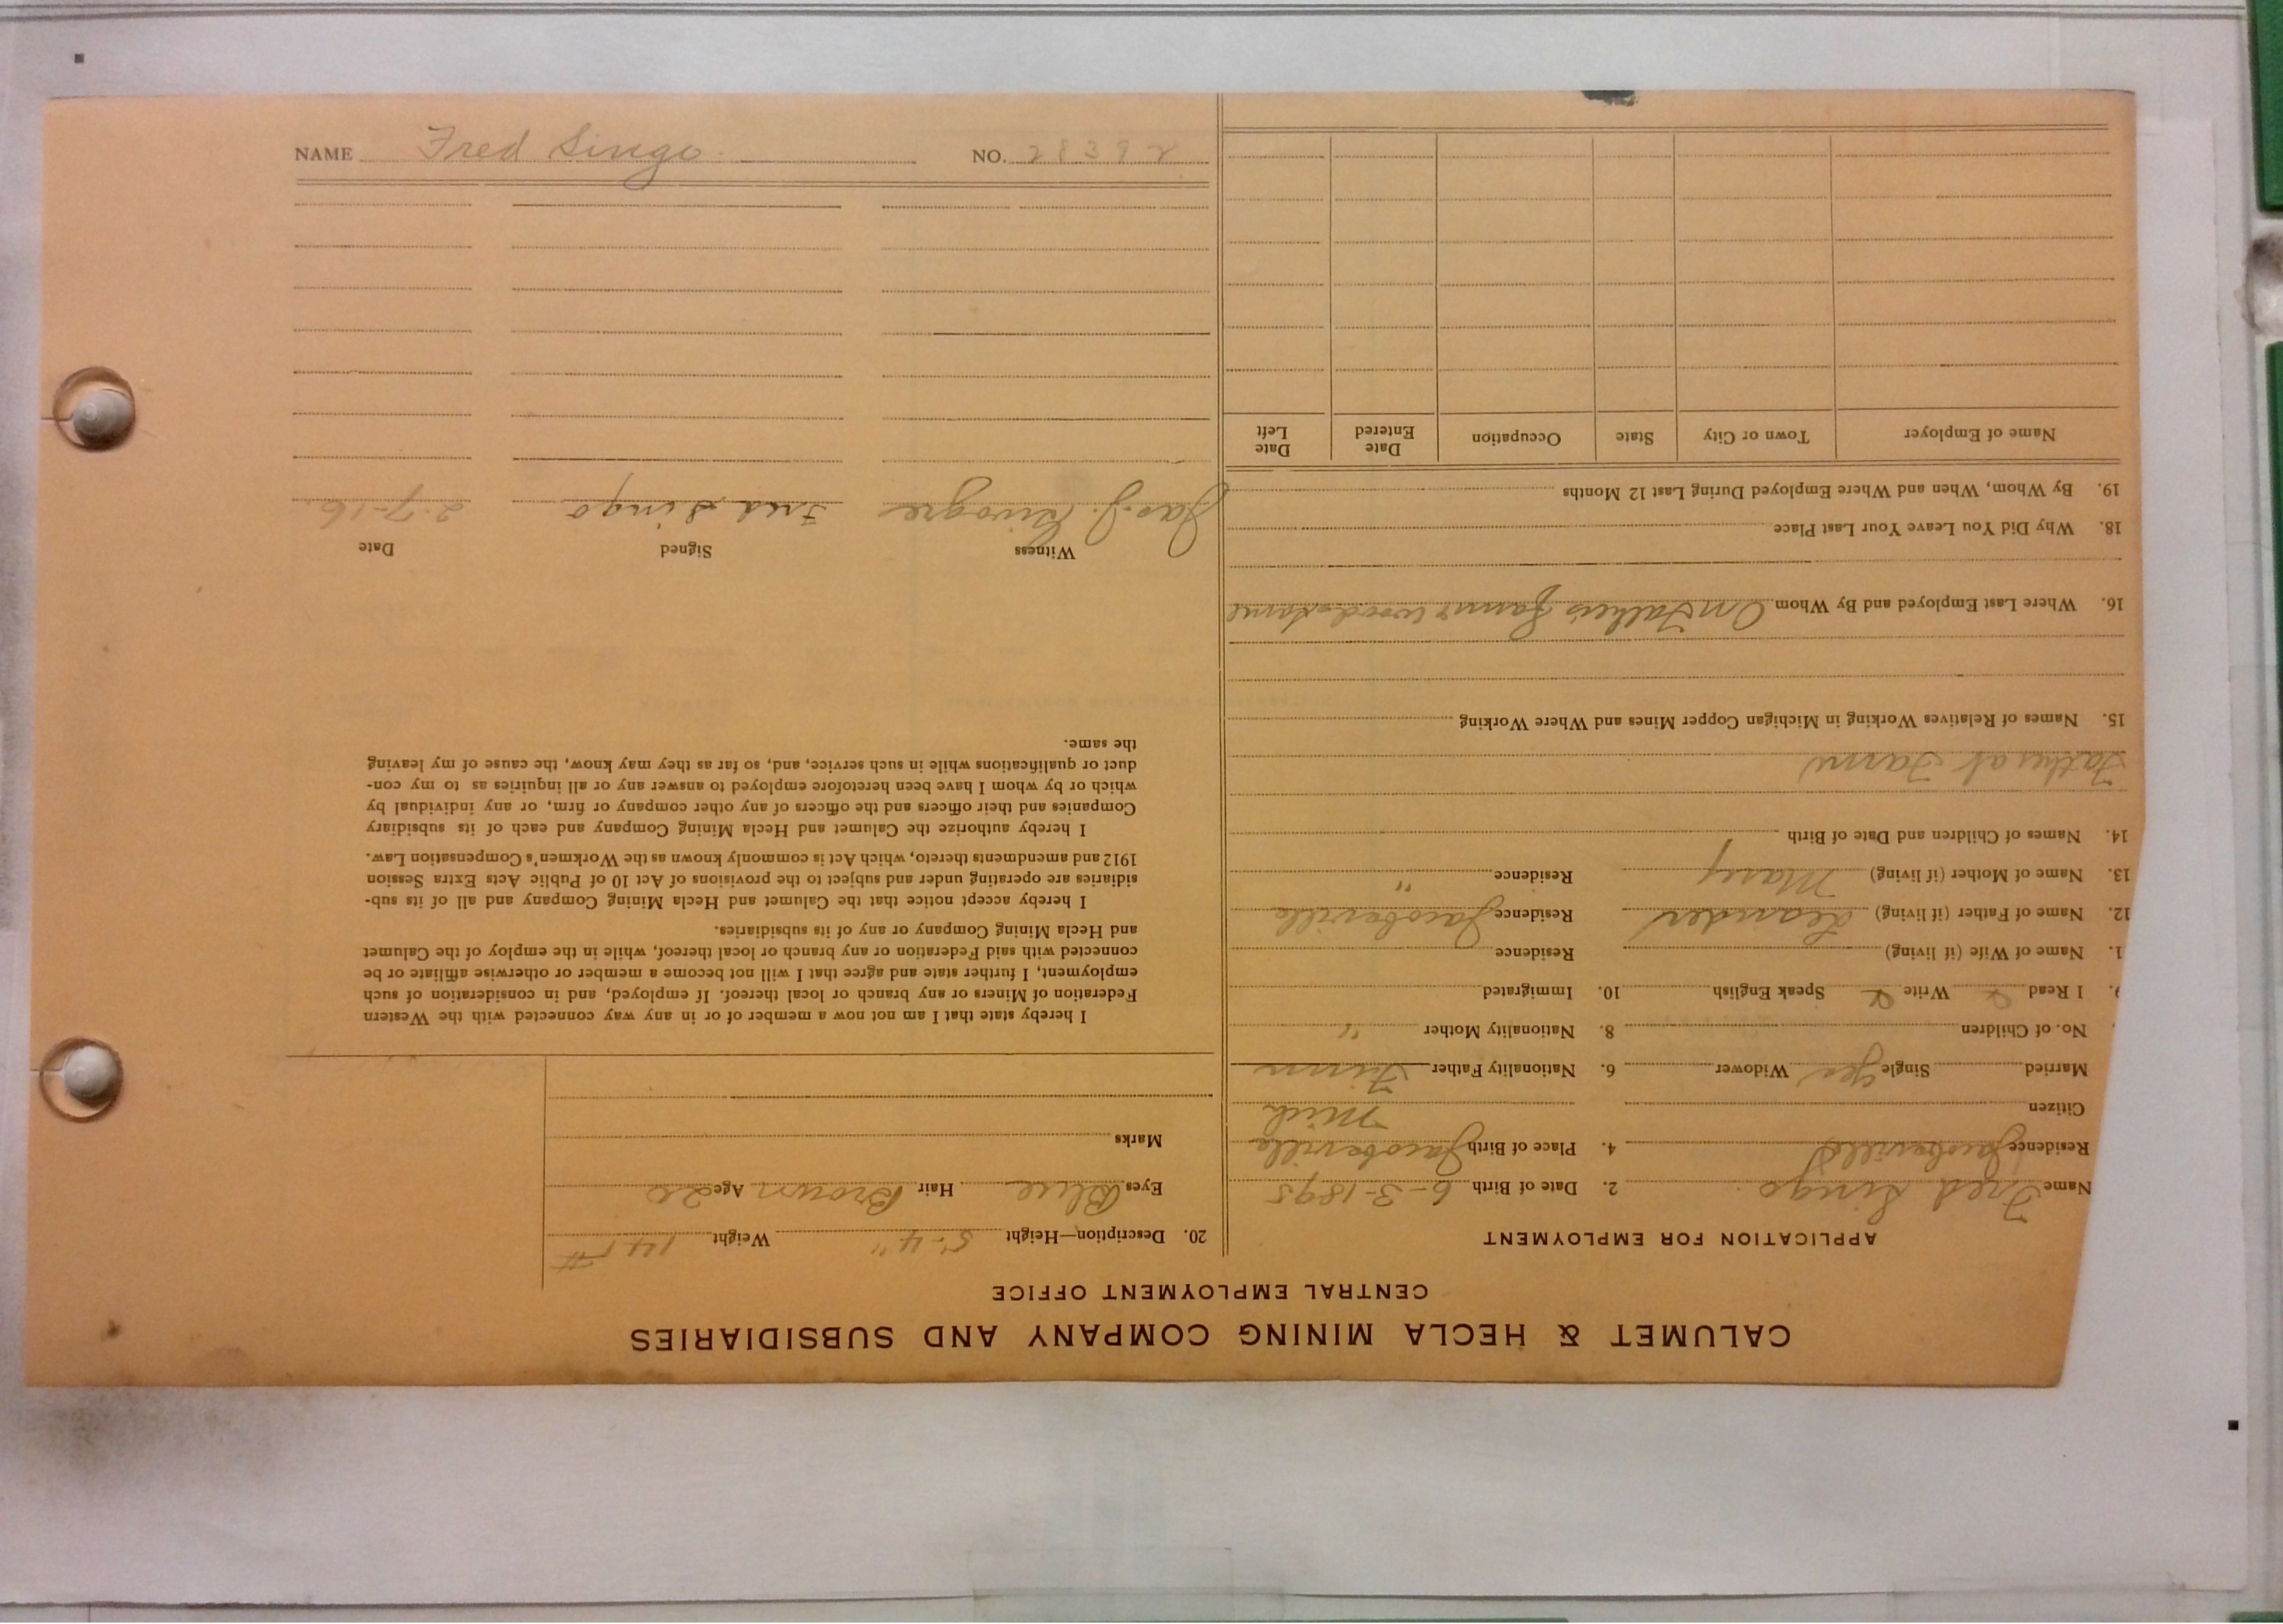 CALUMET & HECLA MINING COMPANY AND SUBSIDIARIES
CENTRAL EMPLOYMENT OFFICE
APPLICATION FOR EMPLOYMENT
Name Fred Singo 2. Date of Birth 6-3-1895
Residence Jacobsville 4. Place of Birth Jacobsville
Citizen Mich
Married Single Yes Widower 6. Nationality Father Finn
No. of Children 8. Nationality Mother "
9. I Read Write Speak English 10. Immigrated
1. Name of Wife (if living) Residence
12. Name of Father (if living) Leander Residence Jacobsville
13. Name of Mother (if living) Mary Residence "
14. Names of Children and Date of Birth
Father at Farm
15. Names of Relatives Working in Michigan Copper Mines and Where Working
16. Where Last Employed and By Whom On Father's Farm & woods some
18. Why Did You Leave Your Last Place
19. By Whom, When and Where Employed During Last 12 Months
Name of Employer Town or City State Occupation Date Entered Date Left
20. Description—Height 5'-4" Weight 145#
Eyes Blue Hair Brown Age 20
Marks
I hereby state that I am not now a member of or in any way connected with the Western
Federation of Miners or any branch or local thereof. If employed, and in consideration of such
employment, I further state and agree that I will not become a member or otherwise affiliate or be
connected with said Federation or any branch or local thereof, while in the employ of the Calumet
and Hecla Mining Company or any of its subsidiaries.
I hereby accept notice that the Calumet and Hecla Mining Company and all of its sub-
sidiaries are operating under and subject to the provisions of Act 10 of Public Acts Extra Session
1912 and amendments thereto, which Act is commonly known as the Workmen's Compensation Law.
I hereby authorize the Calumet and Hecla Mining Company and each of its subsidiary
Companies and their officers and the officers of any other company or firm, or any individual by
which or by whom I have been heretofore employed to answer any or all inquiries as to my con-
duct or qualifications while in such service, and, so far as they may know, the cause of my leaving
the same.
Witness Signed Date
Jas. J. Fred Singo 2-7-16
NAME Fred Singo NO. 28392